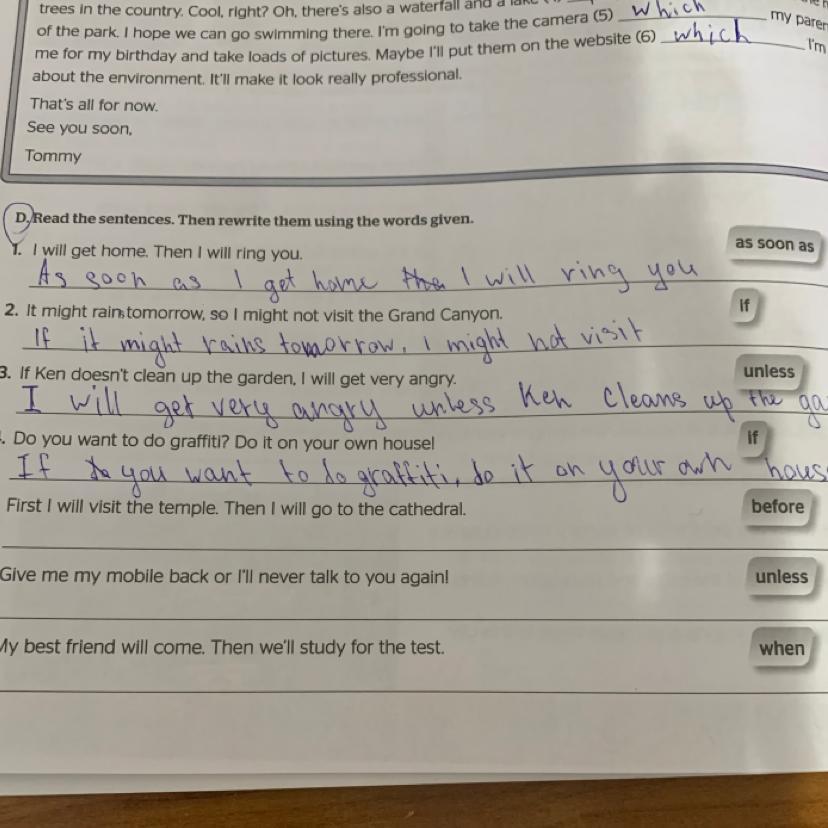 trees in the country. Cool, right? Oh, there's also a waterfall and a
of the park. I hope we can go swimming there. I'm going to take the camera (5) which my paren
me for my birthday and take loads of pictures. Maybe I'll put them on the website (6) which I'm
about the environment. It'll make it look really professional.
That's all for now.
See you soon,
Tommy
D. Read the sentences. Then rewrite them using the words given.
1. I will get home. Then I will ring you. as soon as
As soon as I get home I will ring you
2. It might rain tomorrow, so I might not visit the Grand Canyon. if
If it might rains tomorrow, I might not visit
3. If Ken doesn't clean up the garden, I will get very angry. unless
I will get very angry unless Ken cleans up the ga
. Do you want to do graffiti? Do it on your own house! if
If you want to do graffiti, do it on your own hous
First I will visit the temple. Then I will go to the cathedral. before
Give me my mobile back or I'll never talk to you again! unless
My best friend will come. Then we'll study for the test. when